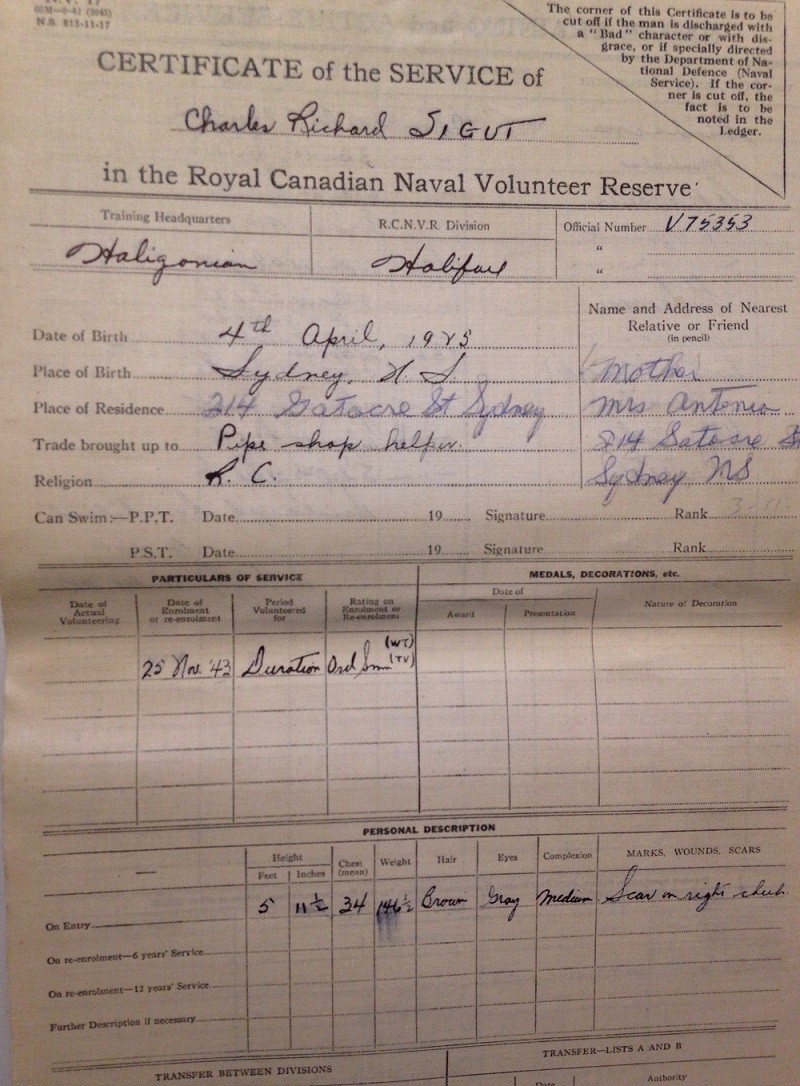 N.V. 17
60M—9-42 (3042)
N.S. 815-11-17
The corner of this Certificate is to be
cut off if the man is discharged with
a "Bad" character or with dis-
grace, or if specially directed
by the Department of Na-
tional Defence (Naval
Service). If the cor-
ner is cut off, the
fact is to be
noted in the
Ledger.
CERTIFICATE of the SERVICE of
Charles Richard SIGUT
in the Royal Canadian Naval Volunteer Reserve
Training Headquarters R.C.N.V.R. Division Official Number V75353
Haligonian Halifax "
"
Name and Address of Nearest
Relative or Friend
(in pencil)
Date of Birth 4th April, 1925
Place of Birth Sydney, N S Mother
Place of Residence 214 Gatacre St Sydney Mrs Antonia
Trade brought up to Pipe shop helper. 214 Gatacre St
Religion R. C. Sydney NS
Can Swim:—P.P.T. Date 19 Signature Rank
P.S.T. Date 19 Signature Rank
PARTICULARS OF SERVICE MEDALS, DECORATIONS, etc.
Date of Actual Volunteering Date of Enrolment or re-enrolment Period Volunteered for Rating on Enrolment or Re-enrolment Date of Award Presentation Nature of Decoration
25 Nov. '43 Duration Ord Smn (WT) (TV)
PERSONAL DESCRIPTION
— Height Feet Inches Chest (mean) Weight Hair Eyes Complexion MARKS, WOUNDS, SCARS
On Entry 5 11 ½ 34 146½ Brown Gray Medium Scar on right cheek
On re-enrolment—6 years' Service
On re-enrolment—12 years' Service
Further Description if necessary
TRANSFER BETWEEN DIVISIONS TRANSFER—LISTS A AND B
Date Authority